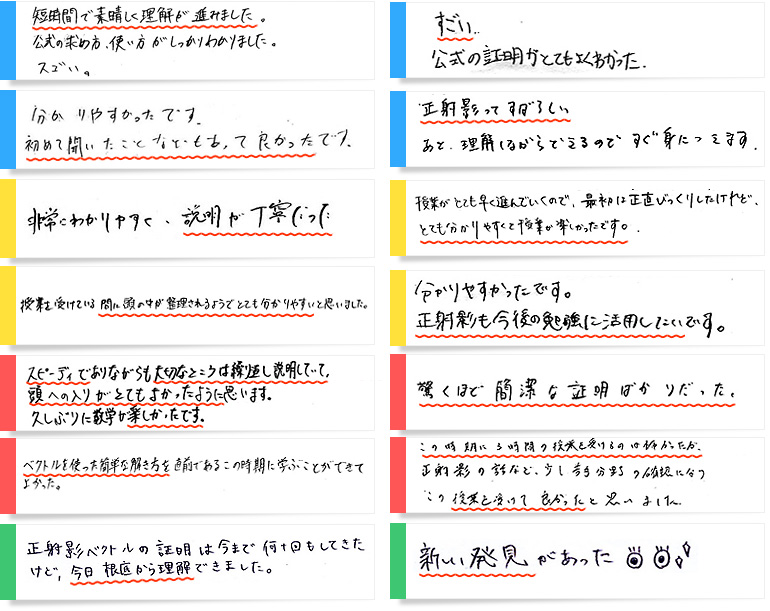 短時間で素晴しく理解が進みました。
公式の求め方、使い方がしっかりわかりました。
スゴい。
分かりやすかったです。
初めて聞いたことなどもあって良かったです。
非常にわかりやすく、説明が丁寧だった
授業を受けている間に頭の中が整理されるようでとても分かりやすいと思いました。
スピーディでありながらも大切なところは繰り返し説明していて、
頭への入りがとてもよかったように思います。
久しぶりに数学が楽しかったです。
ベクトルを使った簡単な解き方を直前であるこの時期に学ぶことができて
よかった。
正射影ベクトルの証明は今まで何十回もしてきた
けど、今日根底から理解できました。
すごい..
公式の証明がとてもよくわかった.
正射影ってすばらしい
あと、理解しながらできるのですぐ身につきます.
授業がとても早く進んでいくので、最初は正直びっくりしたけれど、
とても分かりやすくて授業が楽しかったです。
分かりやすかったです。
正射影も今後の勉強に活用していきたいです。
驚くほど簡潔な証明ばかりだった。
この時期に3時間の授業を受けるのは
正射影の話など、少し の確認になり
この授業を受けて良かったと思いました.
新しい発見があった